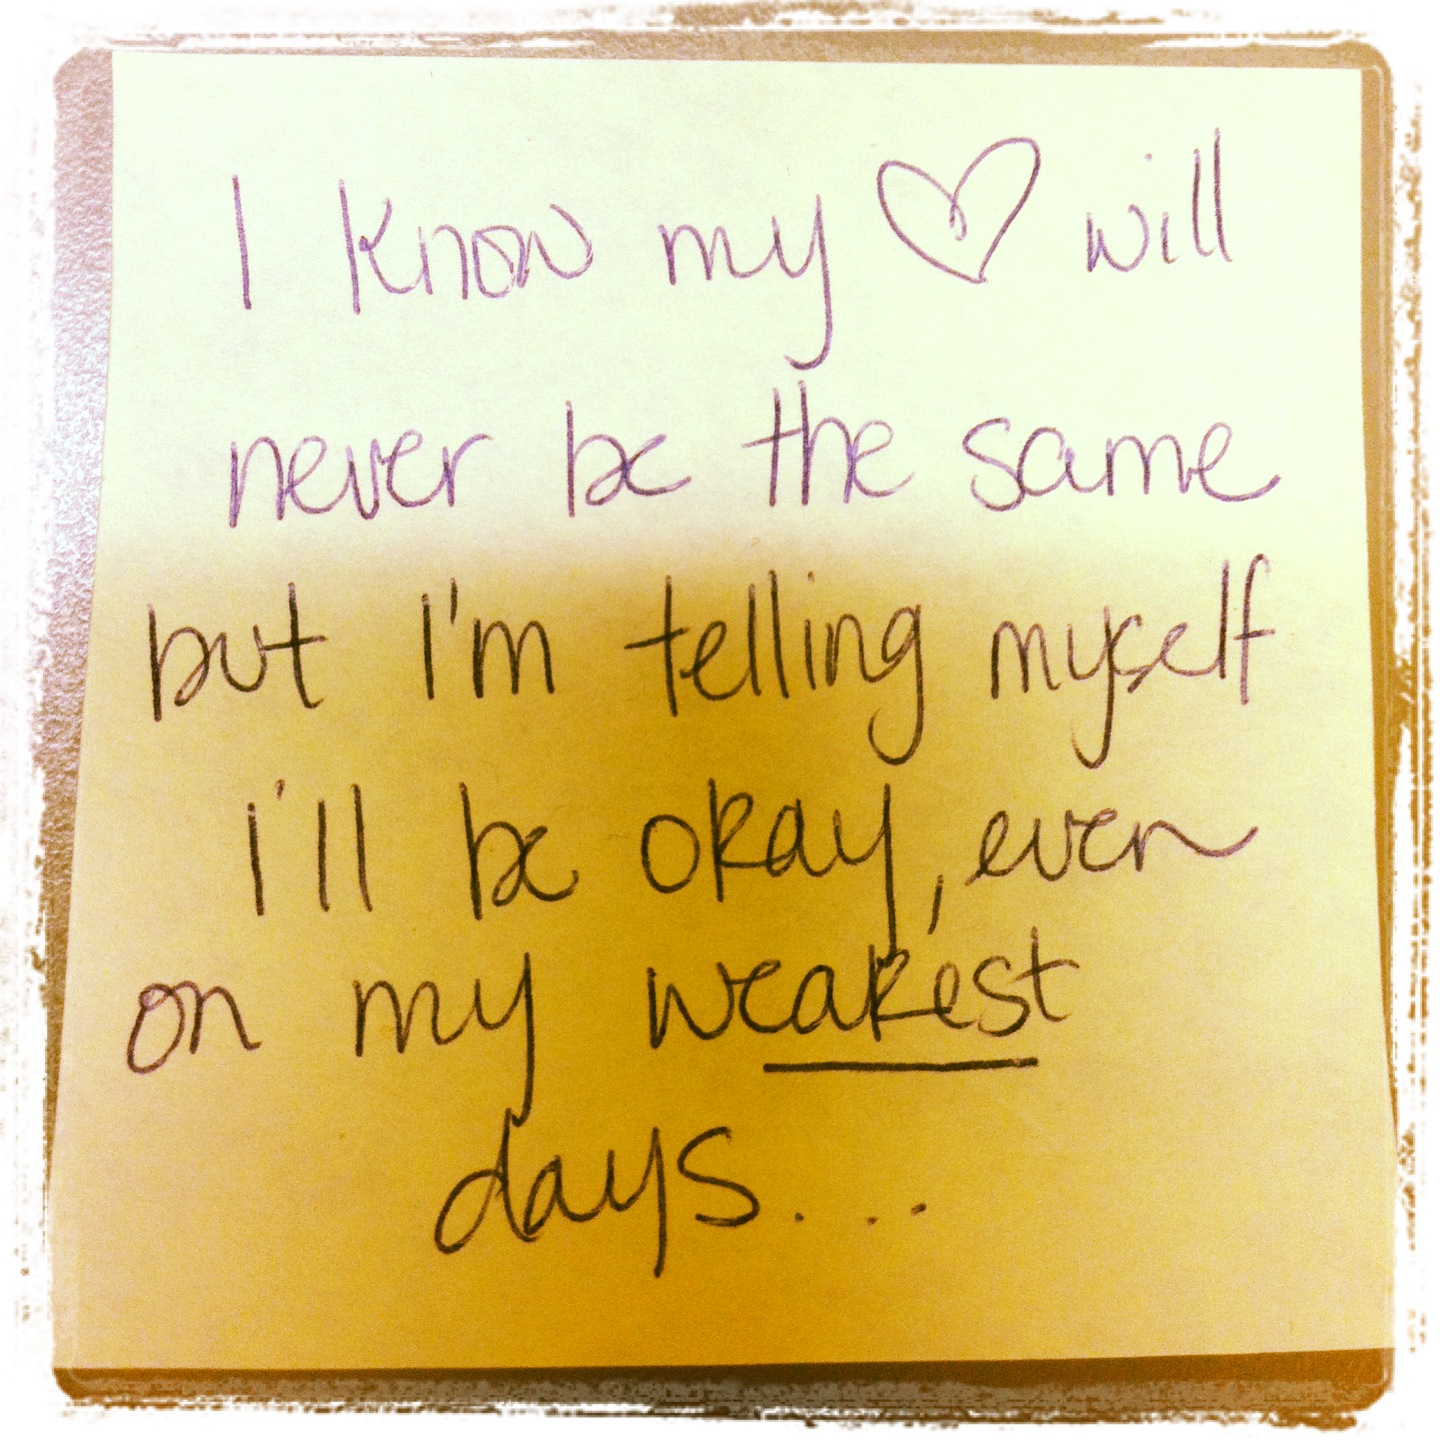 I know my ♡ will
never be the same
but I'm telling myself
i'll be okay, even
on my weakest
days....